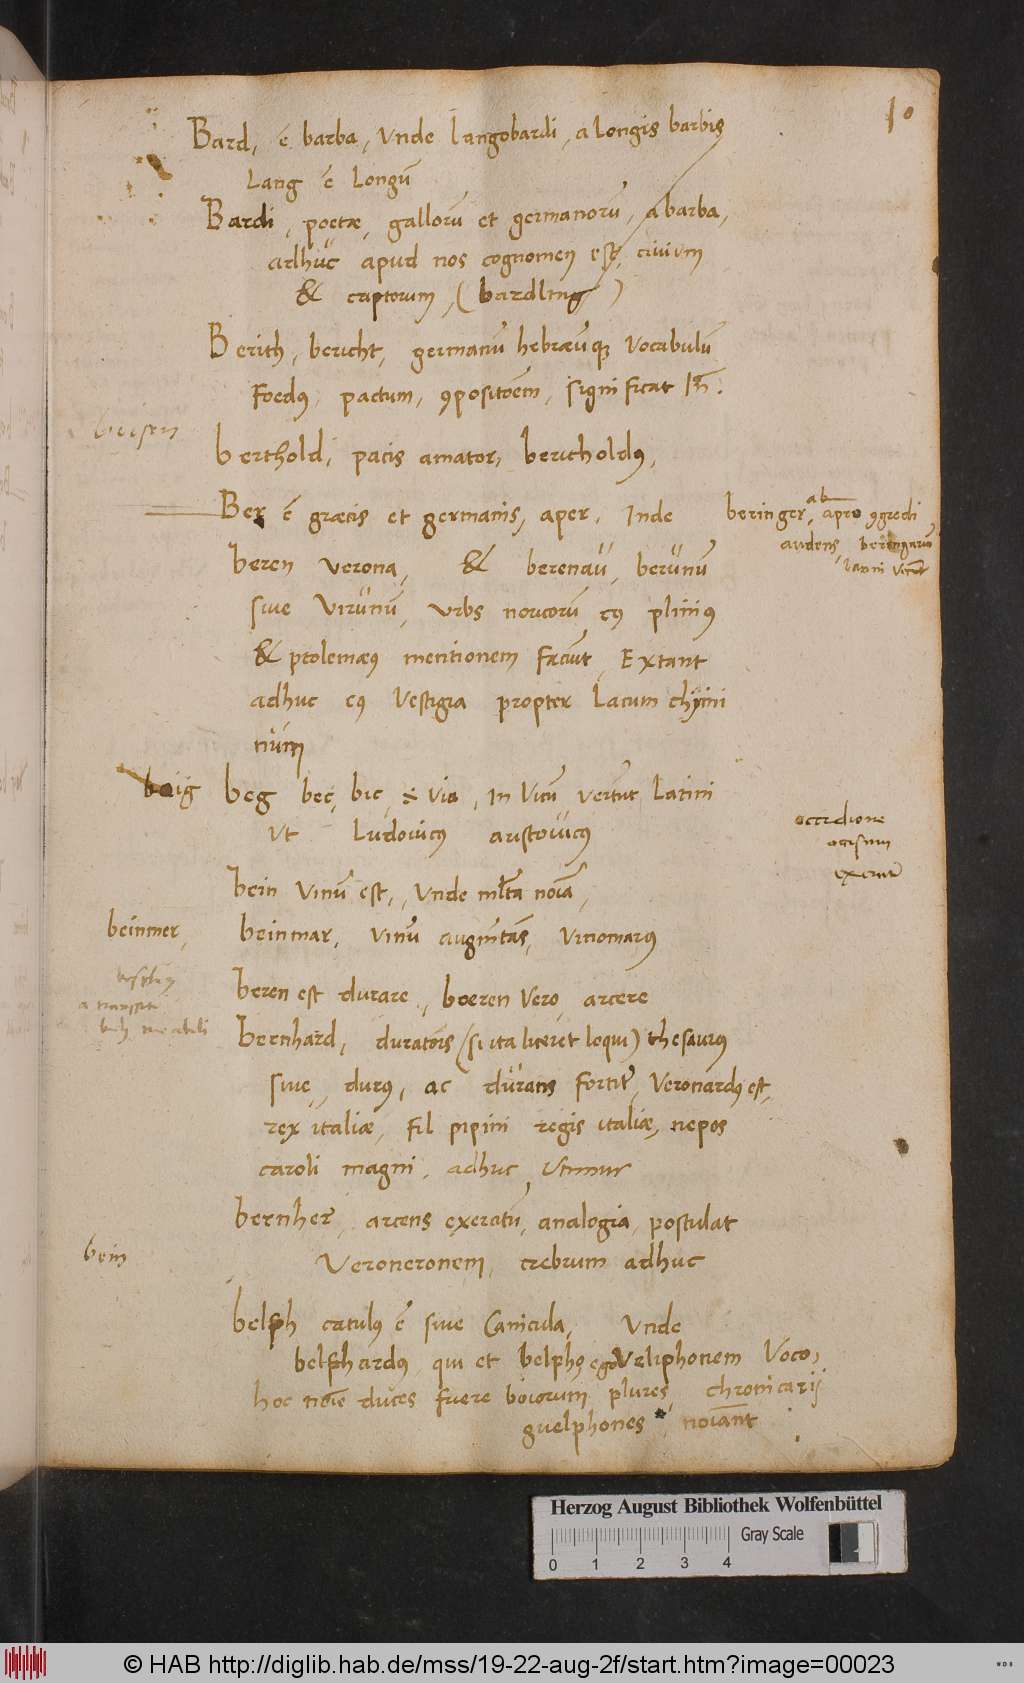 10
Bard, ē barba, Vnde Langobardi, a longis barbis
Lang ē Longū
Bardi, poetæ, gallorū et germanorū, a barba,
adhuc apud nos cognomen est, civium
& captorum, (bardling)
Berith, bericht, germanū hebræūq; Vocabulū
Foedꝰ, pactum, ꝯpositōem, significat
beisen
berthold, pacis amator, bertholdꝰ,
Ber ē græcis et germanis, aper. Inde
beringer, ab apro ꝯgredi
audens, berengariū
latini
beren verona, & berenaŭ, berŭnū
sive Virŭnū, Vrbs noricorū cꝰ plinius
& ptolemæꝰ mentionem faciūt, Extant
adhuc eꝰ Vestigia propter Lacum chimi
nŭm
baig
beg bec, bic, ÷ via, In Vicū vertūt Latini
Vt Ludovicꝰ aristovicꝰ
occidione
occisum
bein Vinū est, Vnde mlta noīa,
beinmer,
beinmar, Vinū augmtās, Vinomarꝰ
a transitu
beren est durare, boeren Vero arcere
bernhard, duratōis (si ita liceret loqui) thesaurus
sive, durꝰ, ac dŭrans fortit, Veronardꝰ est,
rex italiæ, fil pipini regis italiæ, nepos
caroli magni, adhuc Vtimur
bernher, arcens exercitū, analogia postulat
Veroneronem, crebrum adhuc
bein
belph catulꝰ ē sive Canicula, Vnde
belphardꝰ, qui et belphꝰ, ego Veliphonem Voco,
hoc noīe duces fuere boiorum plures, chronicarij
guelphones noiānt
Herzog August Bibliothek Wolfenbüttel
Gray Scale
0 1 2 3 4
© HAB http://diglib.hab.de/mss/19-22-aug-2f/start.htm?image=00023